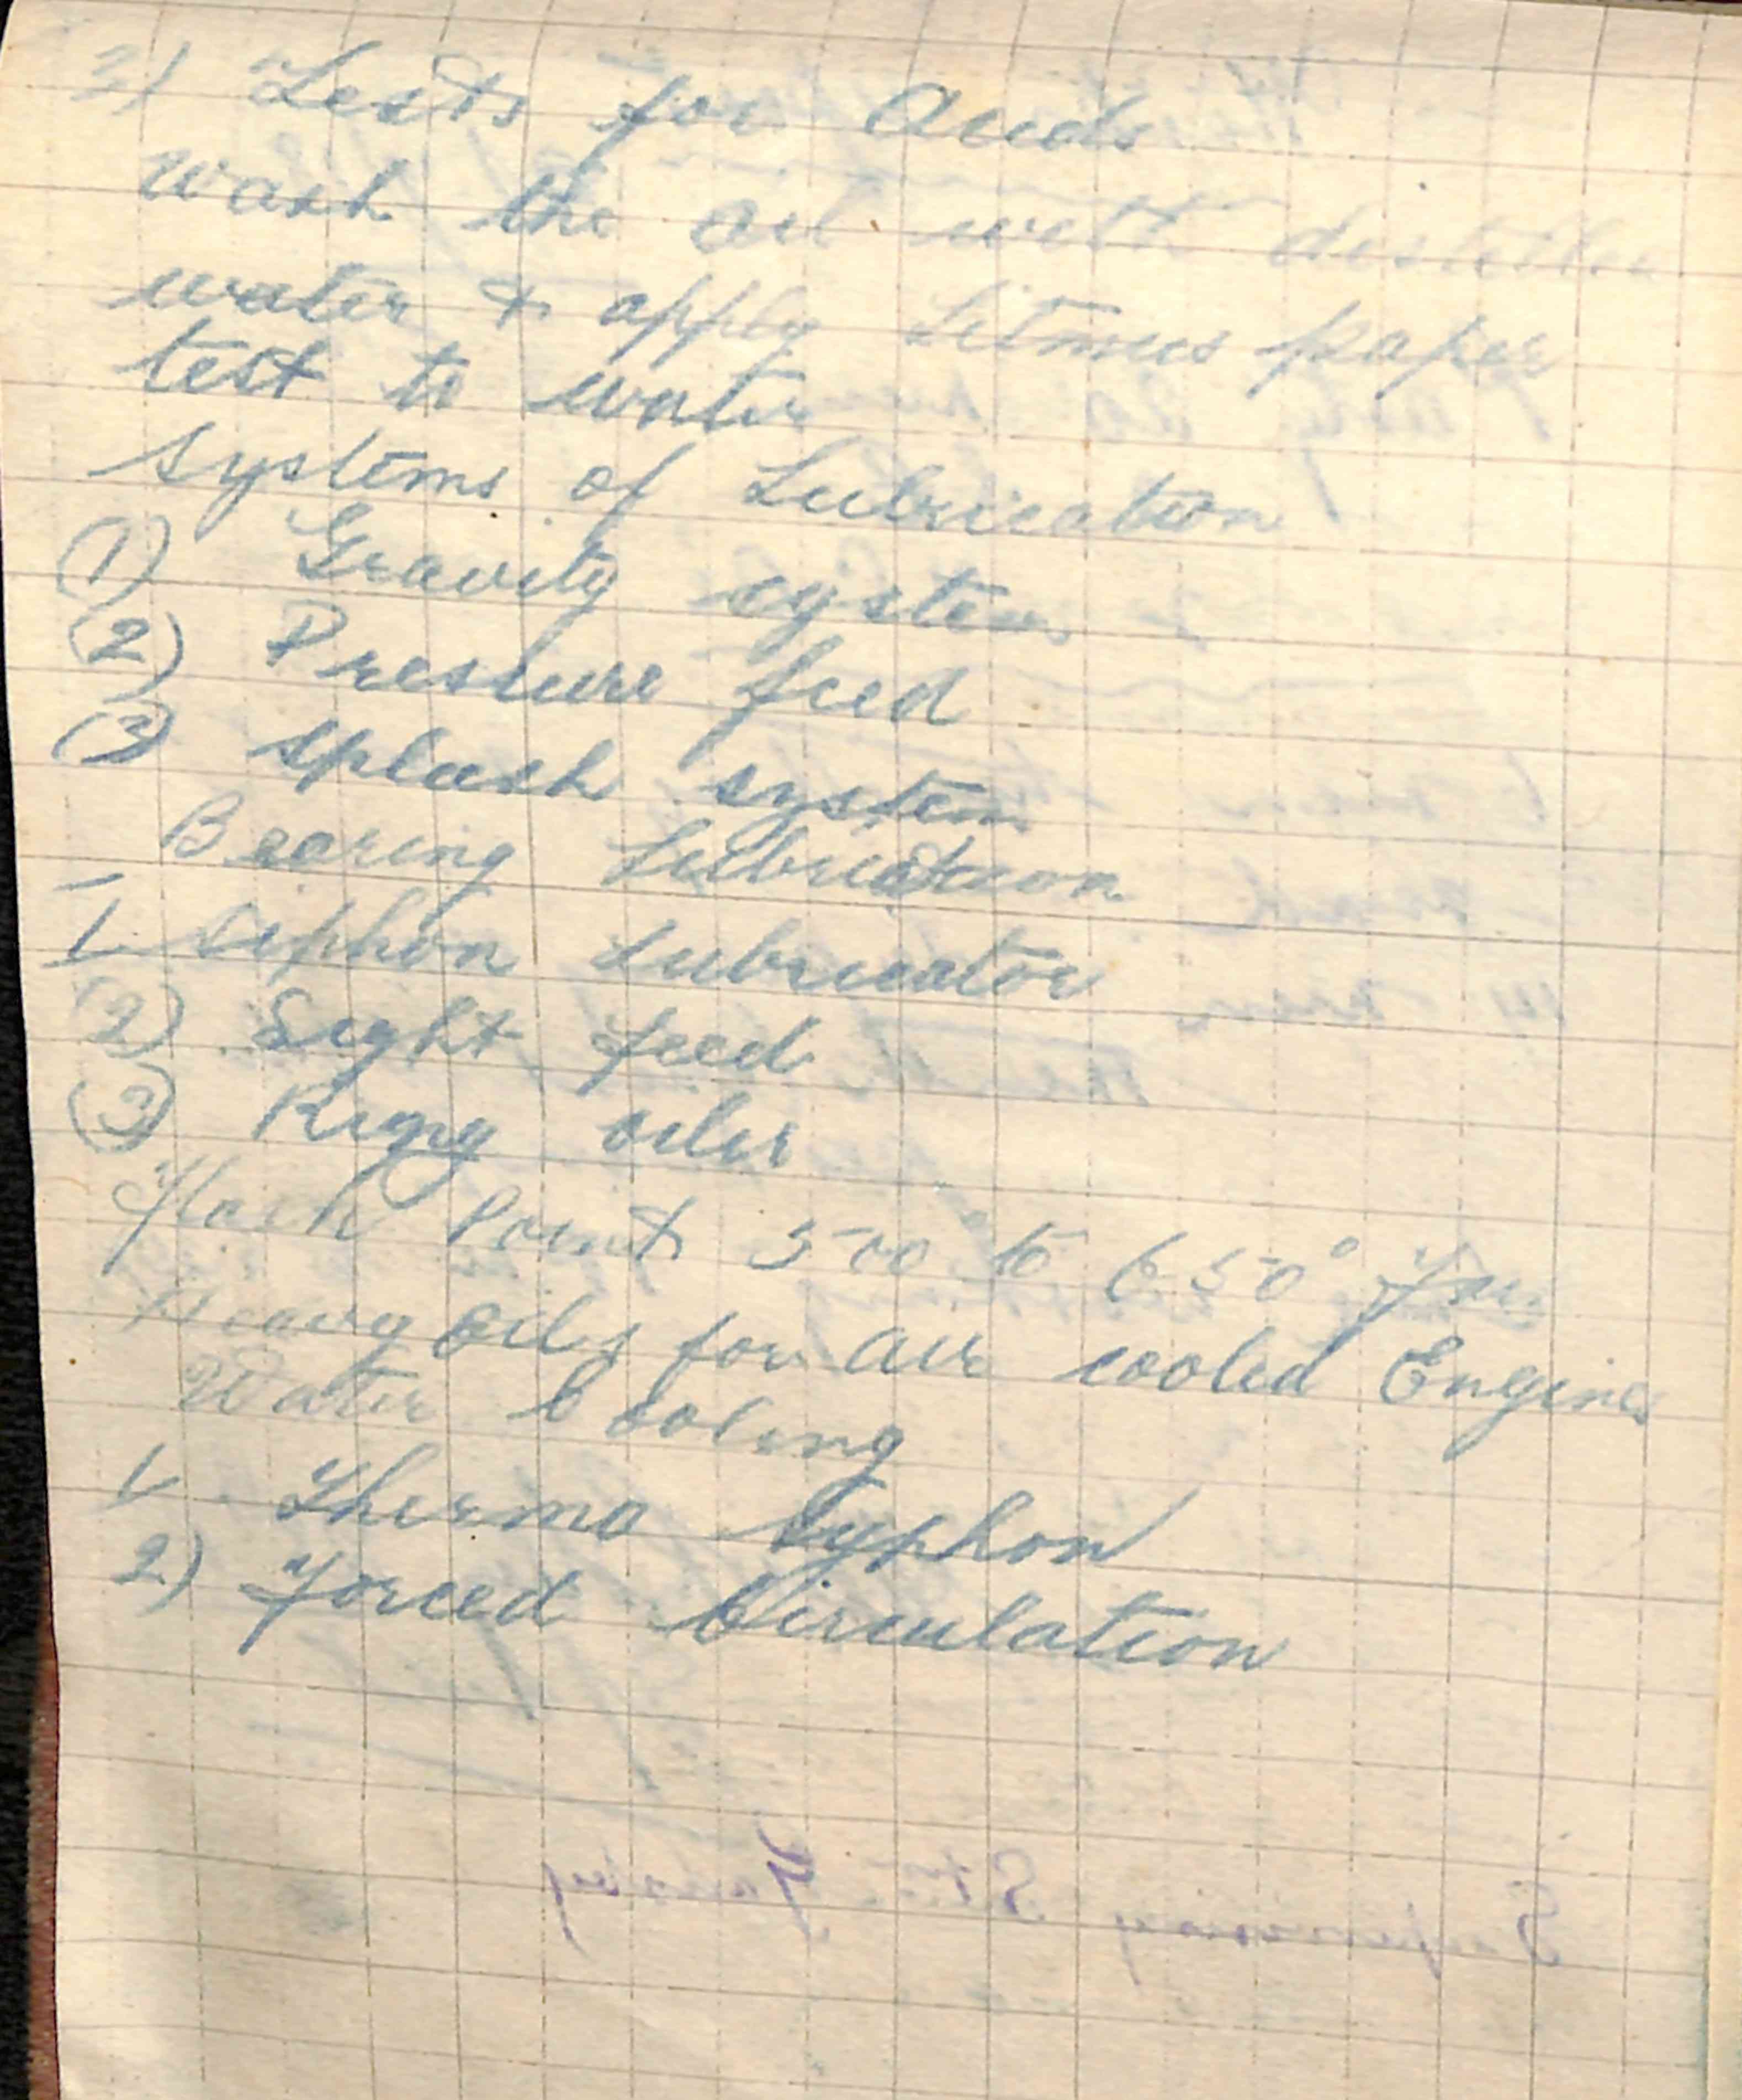 3) Tests for Acids
Wash the oil with distilled
water & apply Litmus paper
test to water
Systems of Lubrication
(1) Gravity system
(2) Pressure feed
(3) Splash system
Bearing Lubrication
1. Syphon Lubricator
(2) Sight feed
(3) Ring oiler
Flash Point 500 to 650°
Heavy oils for air cooled Engines
Water Cooling
1. Thermo Syphon
2) Forced Circulation